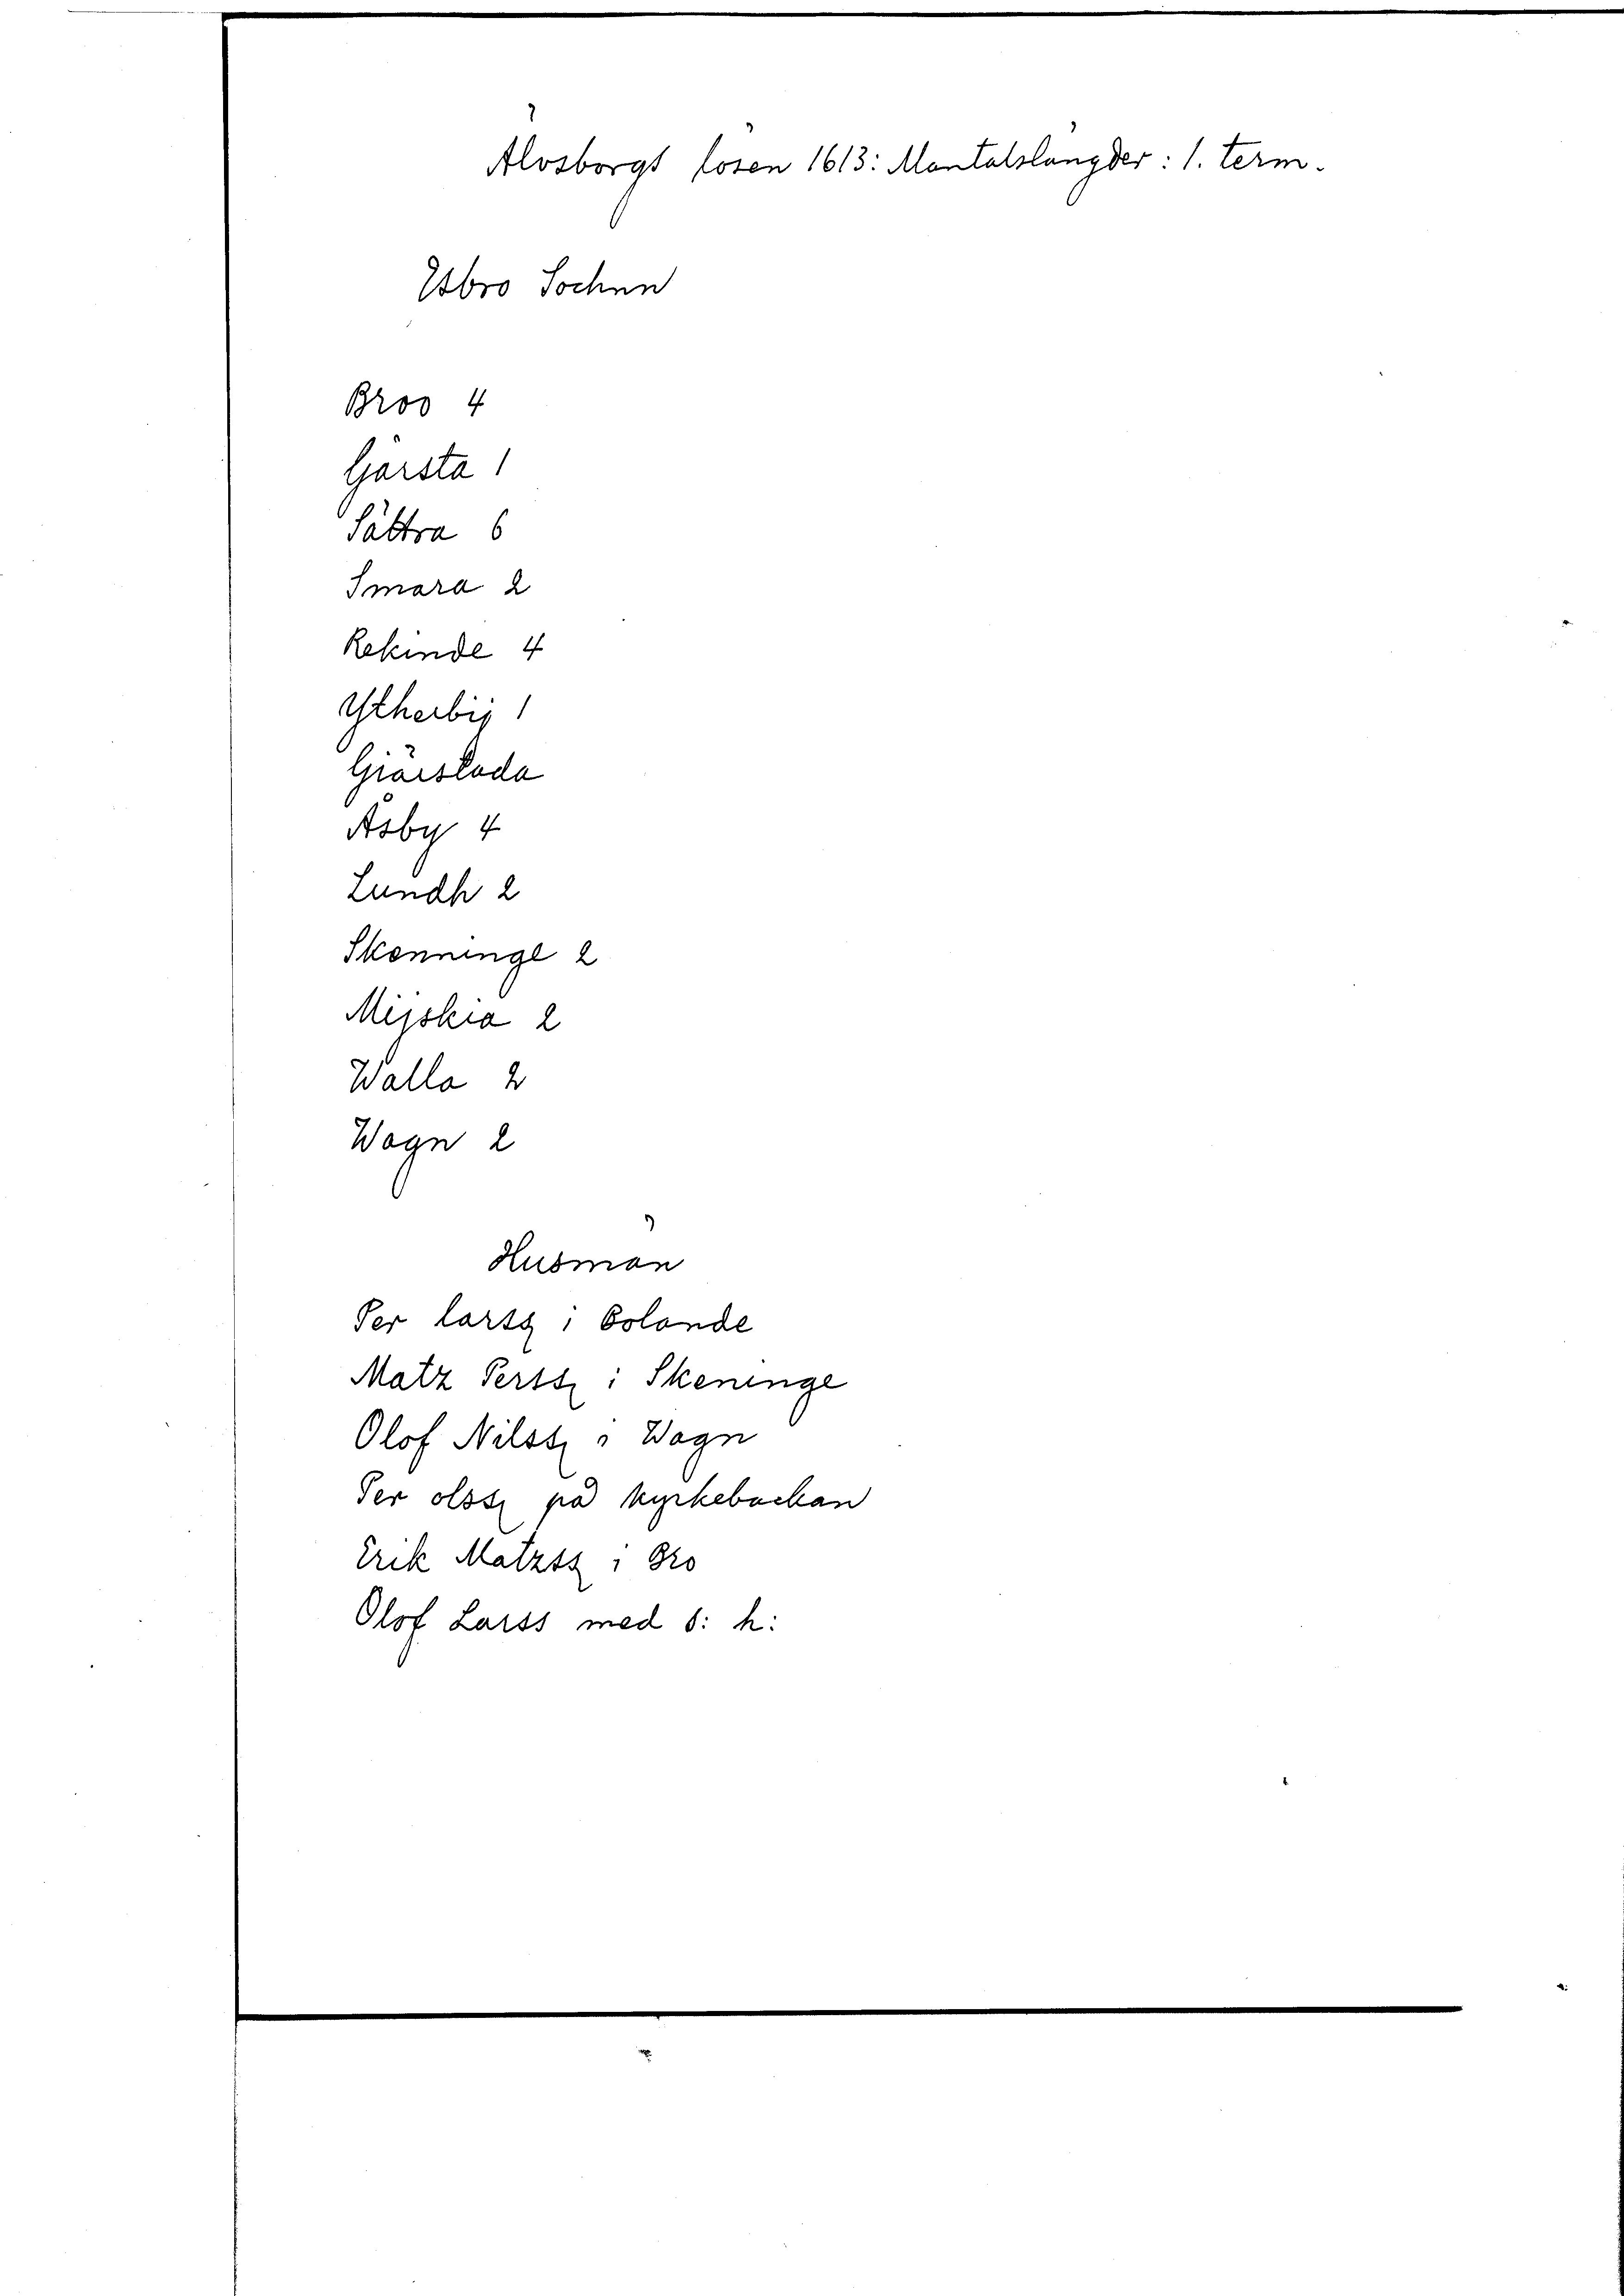 Älvsborgs lösen 1613: Mantalslängder: 1. term.
Esbro Sochnn
Broo 4
Gärsta 1
Sättra 6
Smara 2
Rekinde 4
Ytherbij 1
Giärslada
Åsby 4
Lundh 2
Skenninge 2
Mijskia 2
Walla 2
Wagn 2
Husmän
Per larss i Bolande
Matz Perss i Skeninge
Olof Nilss i Wagn
Per olss på kyrkebackan
Erik Matzss i Bro
Olof Larss med s: h: